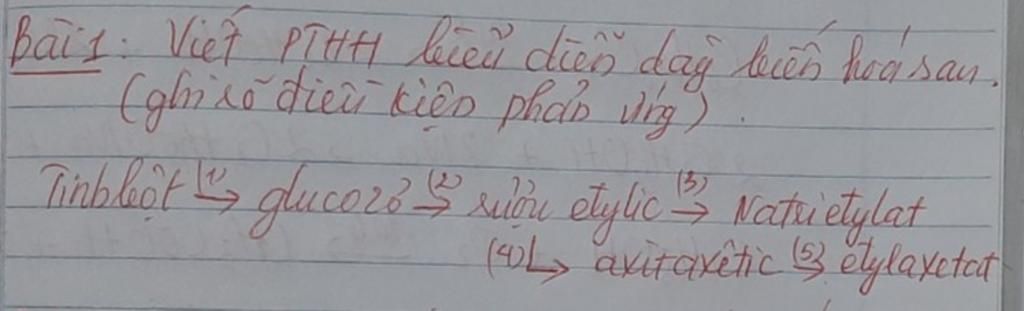 Bài 1: Viết PTHH biểu diễn dãy biến hoá sau.
(ghi rõ điều kiện phản ứng).
Tinh bột (1)→ glucozơ (2)→ rượu etylic (3)→ Natri etylat
(4)↳ axit axêtic (5)→ etylaxetat